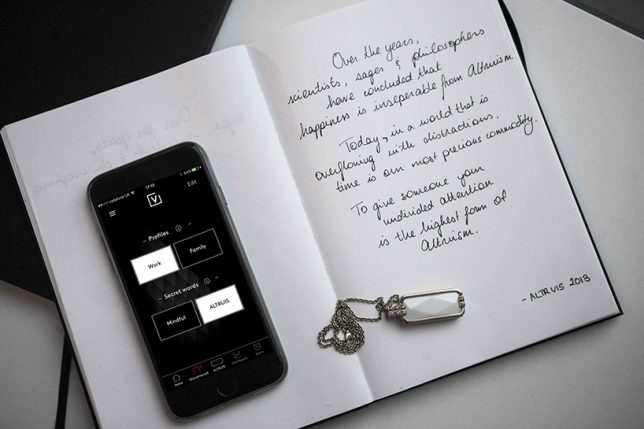 Over the years,
scientists, sages & philosophers
have concluded that
happiness is inseperable from Altruism.
Today, in a world that is
overflowing with distractions.
time is our most precious commodity.
To give someone your
undivided attention
is the highest form of
Altruism.
- ALTRVIS 2018
17:13
V
Edit
Profiles
Work
Family
Secret words
Mindful
ALTRUIS
Home
ALTRUIS